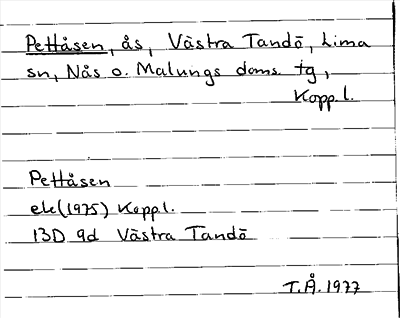 Pettåsen, ås, Västra Tandö, Lima
sn, Nås o. Malungs doms. tg,
Kopp.l.
Pettåsen
ek(1975) Koppl.
13D 9d Västra Tandö
T.Å. 1977